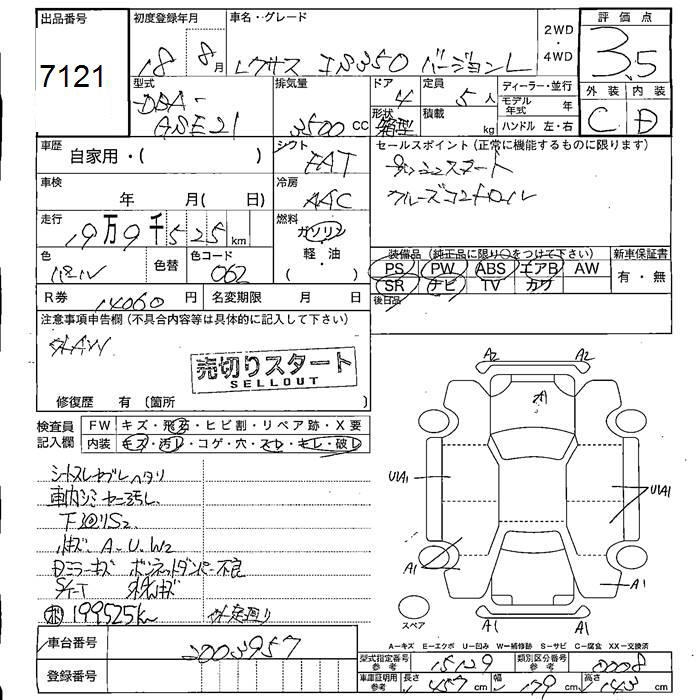 出品番号 初度登録年月 車名・グレード 2WD・4WD 評価点
7121 18 8月 レクサス IS350 バージョンL 3.5
型式 排気量 ドア 定員 ディーラー・並行 外装 内装
DBA- 3500cc 4 5人 モデル年式 年 C D
GSE21 形状 箱型 積載 kg ハンドル 左・右
車歴 自家用・( ) シフト FAT セールスポイント (正常に機能するものに限ります)
プッシュスタート
車検 年 月( 日) 冷房 AAC クルーズコントロール
走行 19万9千525km 燃料 ガソリン 軽・油 ( )
装備品 (純正品に限り○をつけて下さい) 新車保証書
色 パール 色替 色コード 062 PS PW ABS エアB AW 有・無
SR ナビ TV カワ
R券 14060円 名変期限 月 日 後日品
注意事項申告欄 (不具合内容等は具体的に記入して下さい)
売切りスタート
SELLOUT
修復歴 有 (箇所 )
検査員記入欄 FW キズ・飛石・ヒビ割・リペア跡・X要
内装 キズ・汚レ・コゲ・穴・スレ・キレ・破し
シートスレ ヘタリ
車内シミ
下回りS2
小キズ A.U.W2
Dミラーキズ ボンネットダンパー不良
199525km
A2 A2
A1
UVA1 UVA1
A1 A1
A1 A1
スペア
A−キズ E−エクボ U−凹み W−補修跡 S−サビ C−腐食 XX−交換済
車台番号 2003957
型式指定番号 参考 15129 類別区分番号 参考 0008
登録番号
車庫証明用 参考 長さ 457cm 幅 179cm 高さ 143cm